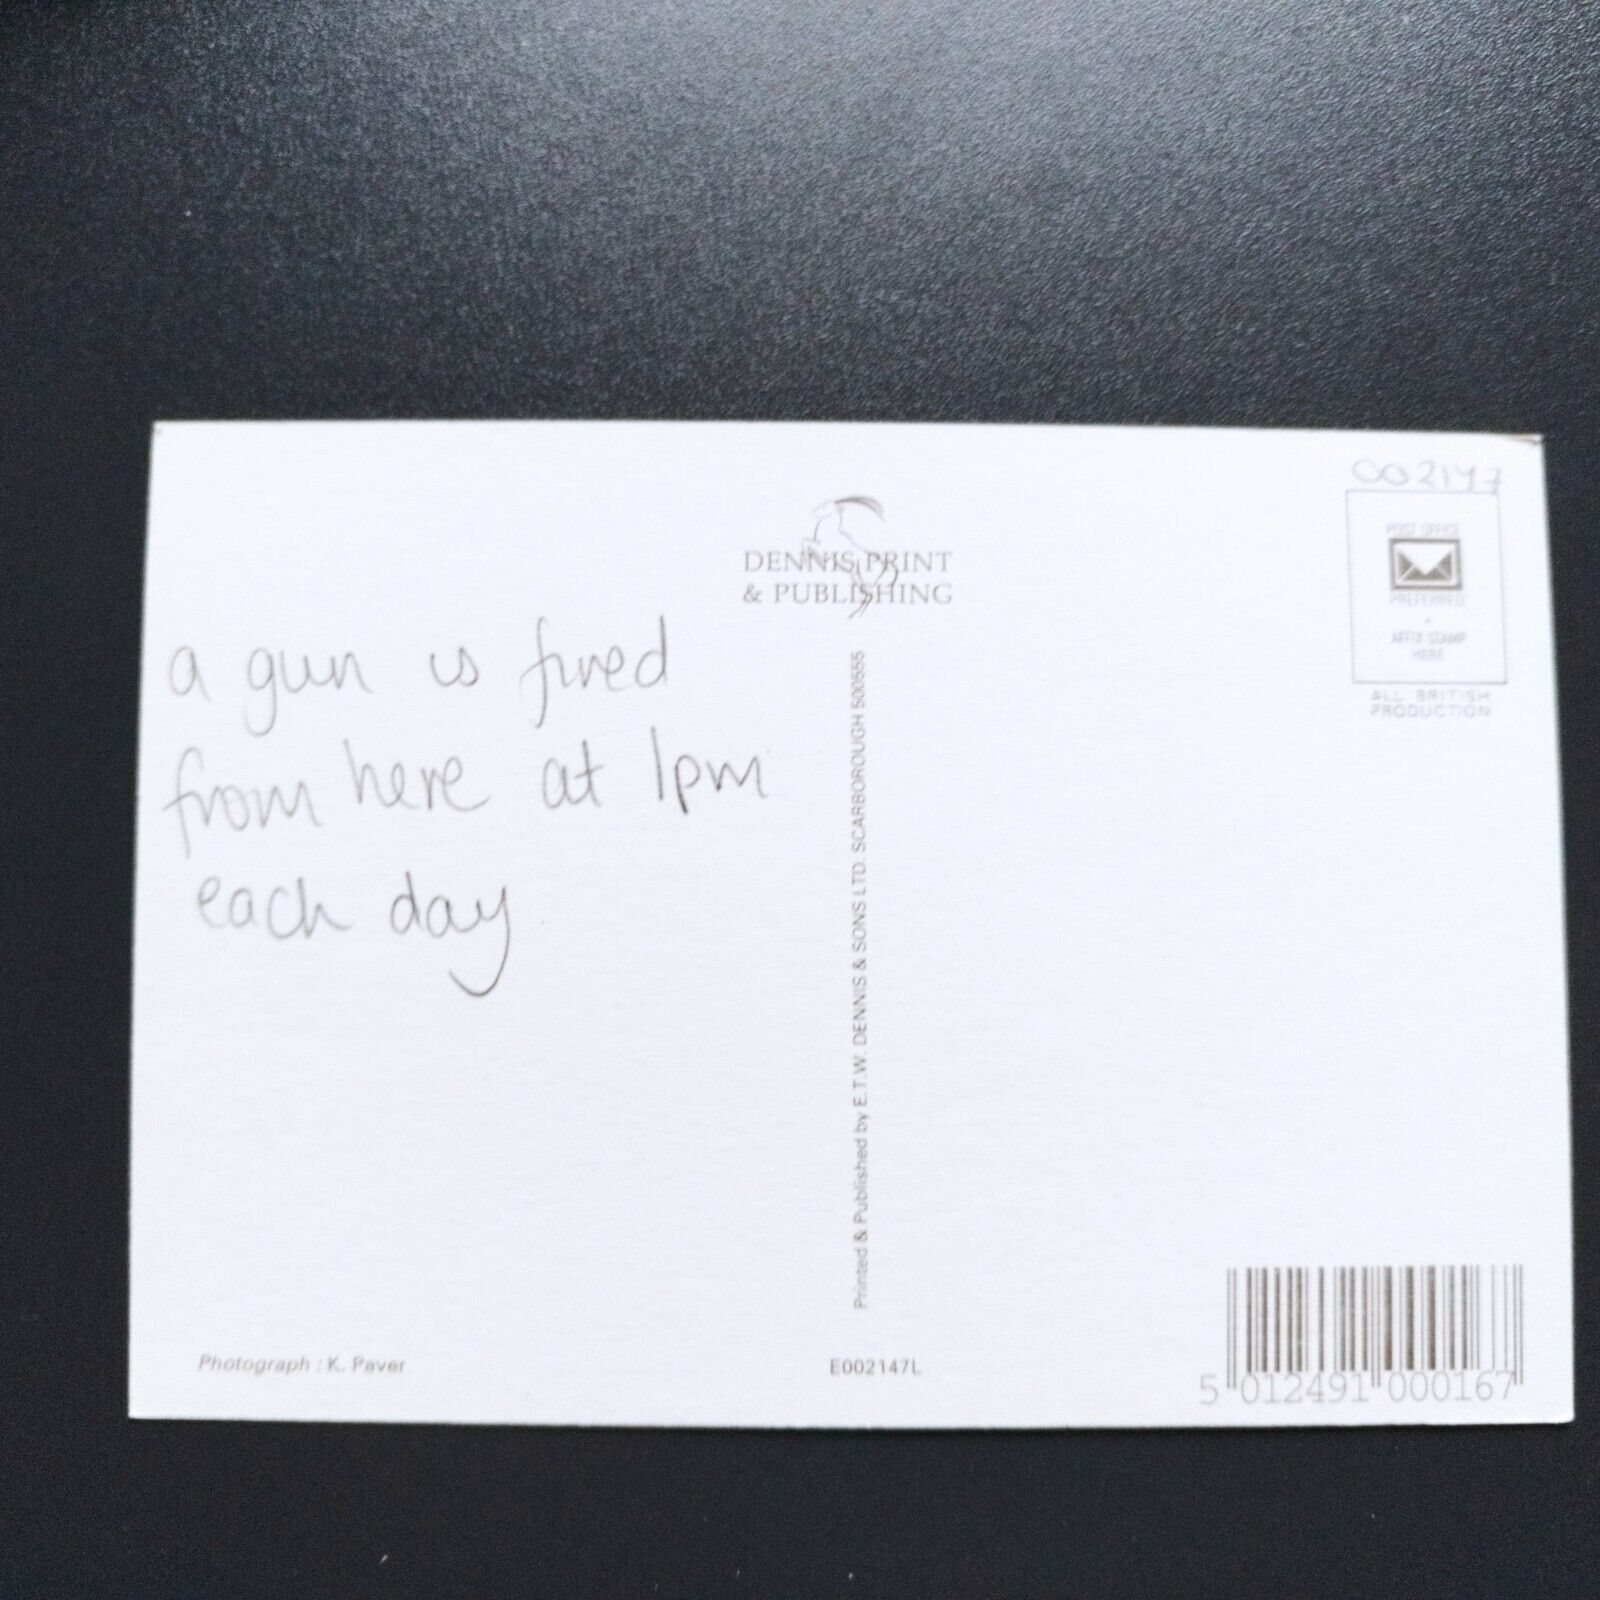 002147
POST OFFICE
PREFERRED
AFFIX STAMP
HERE
ALL BRITISH
PRODUCTION
DENNIS PRINT
& PUBLISHING
a gun is fired
from here at 1pm
each day
Printed & Published by E.T.W. DENNIS & SONS LTD. SCARBOROUGH 500555
Photograph : K. Paver
E002147L
5 012491 000167